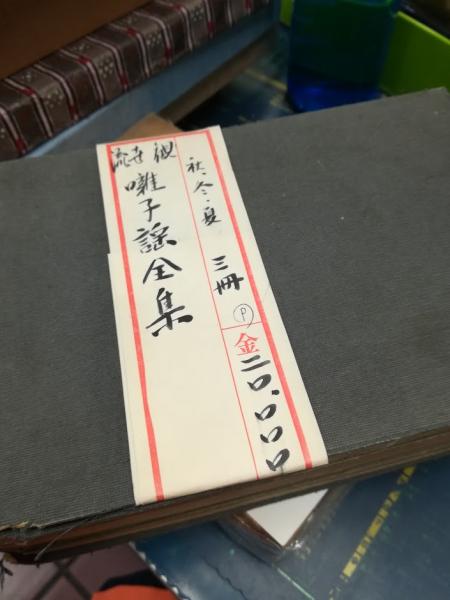 観世流
囃子謡全集
秋・冬・夏
三冊
P
金二〇.〇〇〇